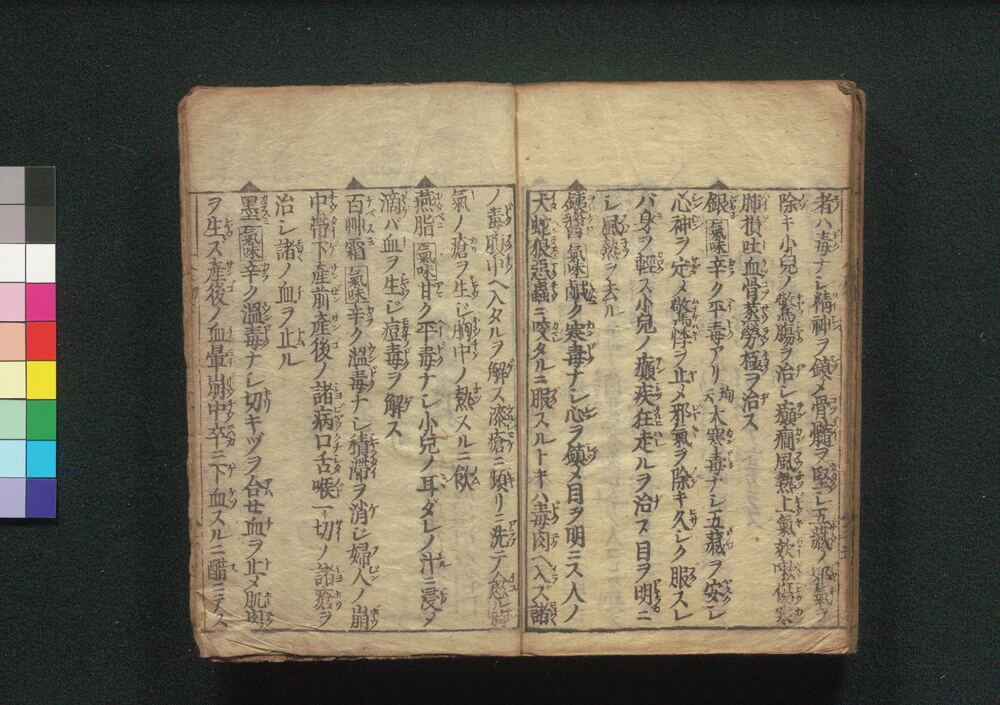 者ハ毒ナシ精神ヲ鎮メ骨髓ヲ堅シ五藏ノ邪氣ヲ
除キ小兒ノ驚腸ヲ治シ癲癇風熱上氣欬嗽傷寒
肺損吐血骨蒸勞極ヲ治ス
銀 氣味辛ク平毒アリ 大寒毒ナシ五藏ヲ安シ
心神ヲ定メ驚悸ヲ止メ邪氣ヲ除キ久シク服スレ
バ身ヲ輕ス小兒ノ癲疾狂走ルヲ治ス目ヲ明ニ
シ風熱ヲ去ル
鐵 氣味鹹ク寒毒ナシ心ヲ鎮メ目ヲ明ニス人ノ
犬蛇狼惡蟲ニ咬タルニ服スルトキハ毒肉ヘ入ズ諸
ノ毒腹中ヘ入タルヲ解ス漆瘡ニ頻リニ洗テ愈ル時
氣ノ瘡ヲ生ジ胸中ノ熱スルニ飲
燕脂 氣味甘ク平毒ナシ小兒ノ耳ダレノ汁ニ浸シ
滴バ血ヲ生ジ痘毒ヲ解ス
百艸霜 氣味辛ク溫毒ナシ積滯ヲ消ジ婦人ノ崩
中帶下產前產後ノ諸病口舌喉一切ノ諸瘡ヲ
治シ諸ノ血ヲ止ル
墨 氣味辛ク溫毒ナシ切キヅヲ合セ血ヲ止メ肌肉
ヲ生ス產後ノ血暈崩中卒ニ下血スルニ醋ニテス